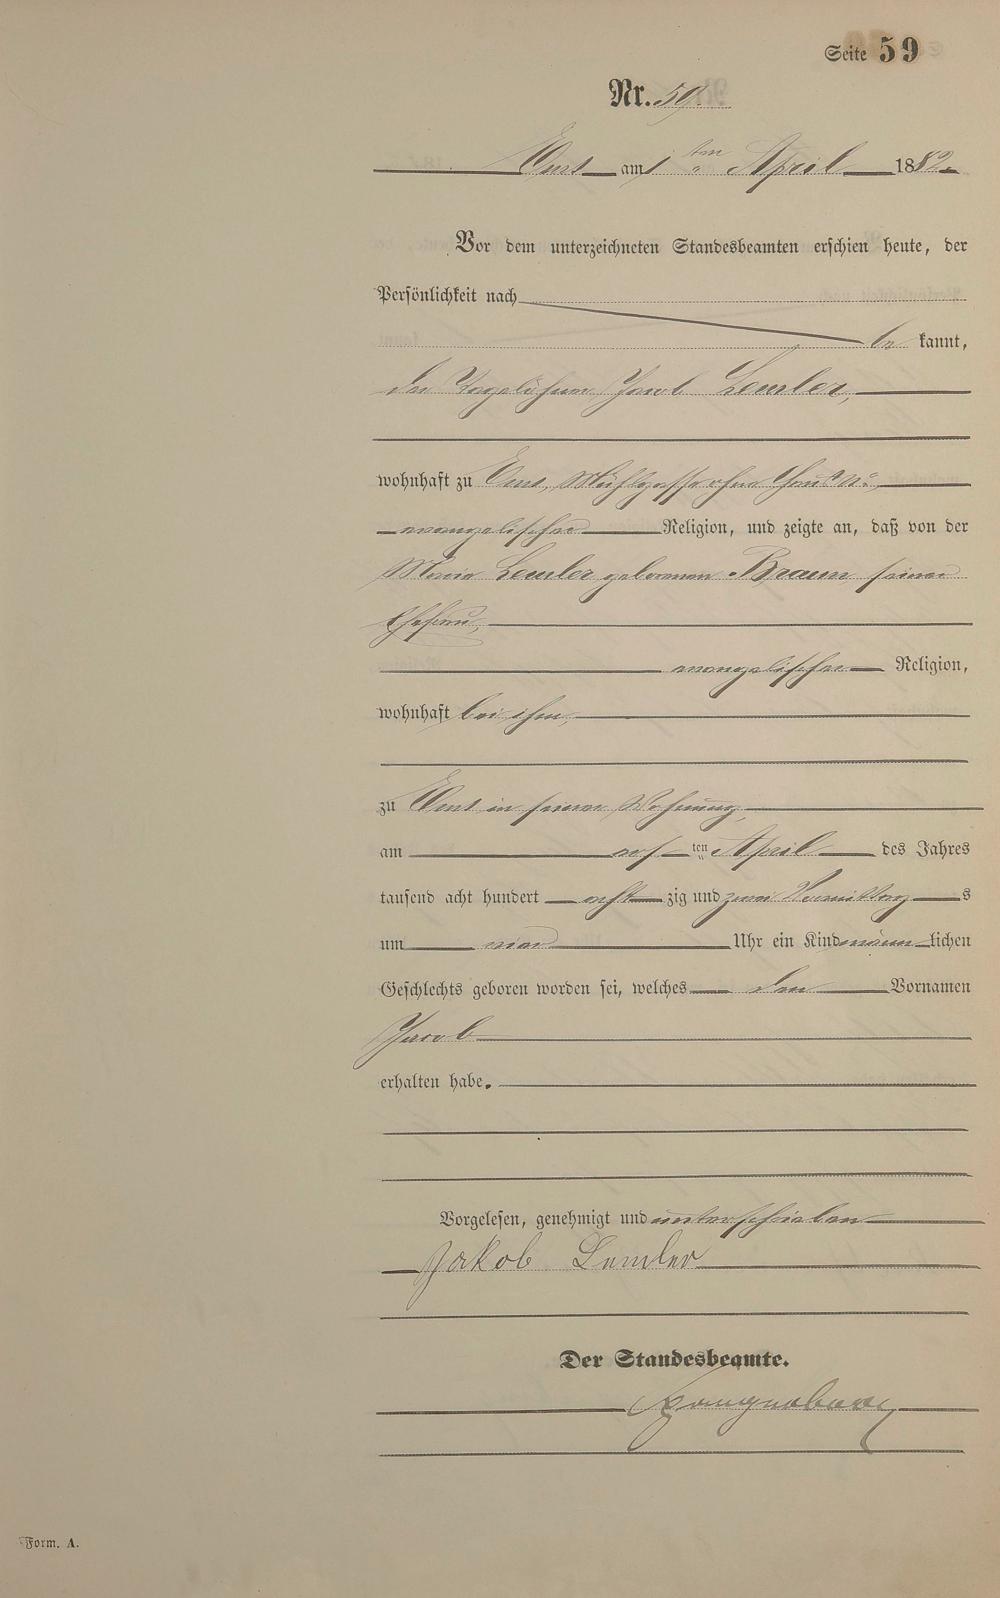 Seite 59
Nr. 59.
Ems am 1ten April 1882.
Vor dem unterzeichneten Standesbeamten erschien heute, der
Persönlichkeit nach
be kannt,
der Tagelöhner Jacob Lemler,
wohnhaft zu Ems, Mühlgasse ohne Haus No.,
evangelischer Religion, und zeigte an, daß von der
Maria Lemler geborenen Braun, seiner
Ehefrau,
evangelischer Religion,
wohnhaft bei ihm,
zu Ems in seiner Wohnung,
am ten April des Jahres
tausend acht hundert acht zig und zwei Vormittag s
um vier Uhr ein Kind männ lichen
Geschlechts geboren worden sei, welches den Vornamen
Jacob
erhalten habe.
Vorgelesen, genehmigt und unterschrieben
Jakob Lemler
Der Standesbeamte.
Form. A.